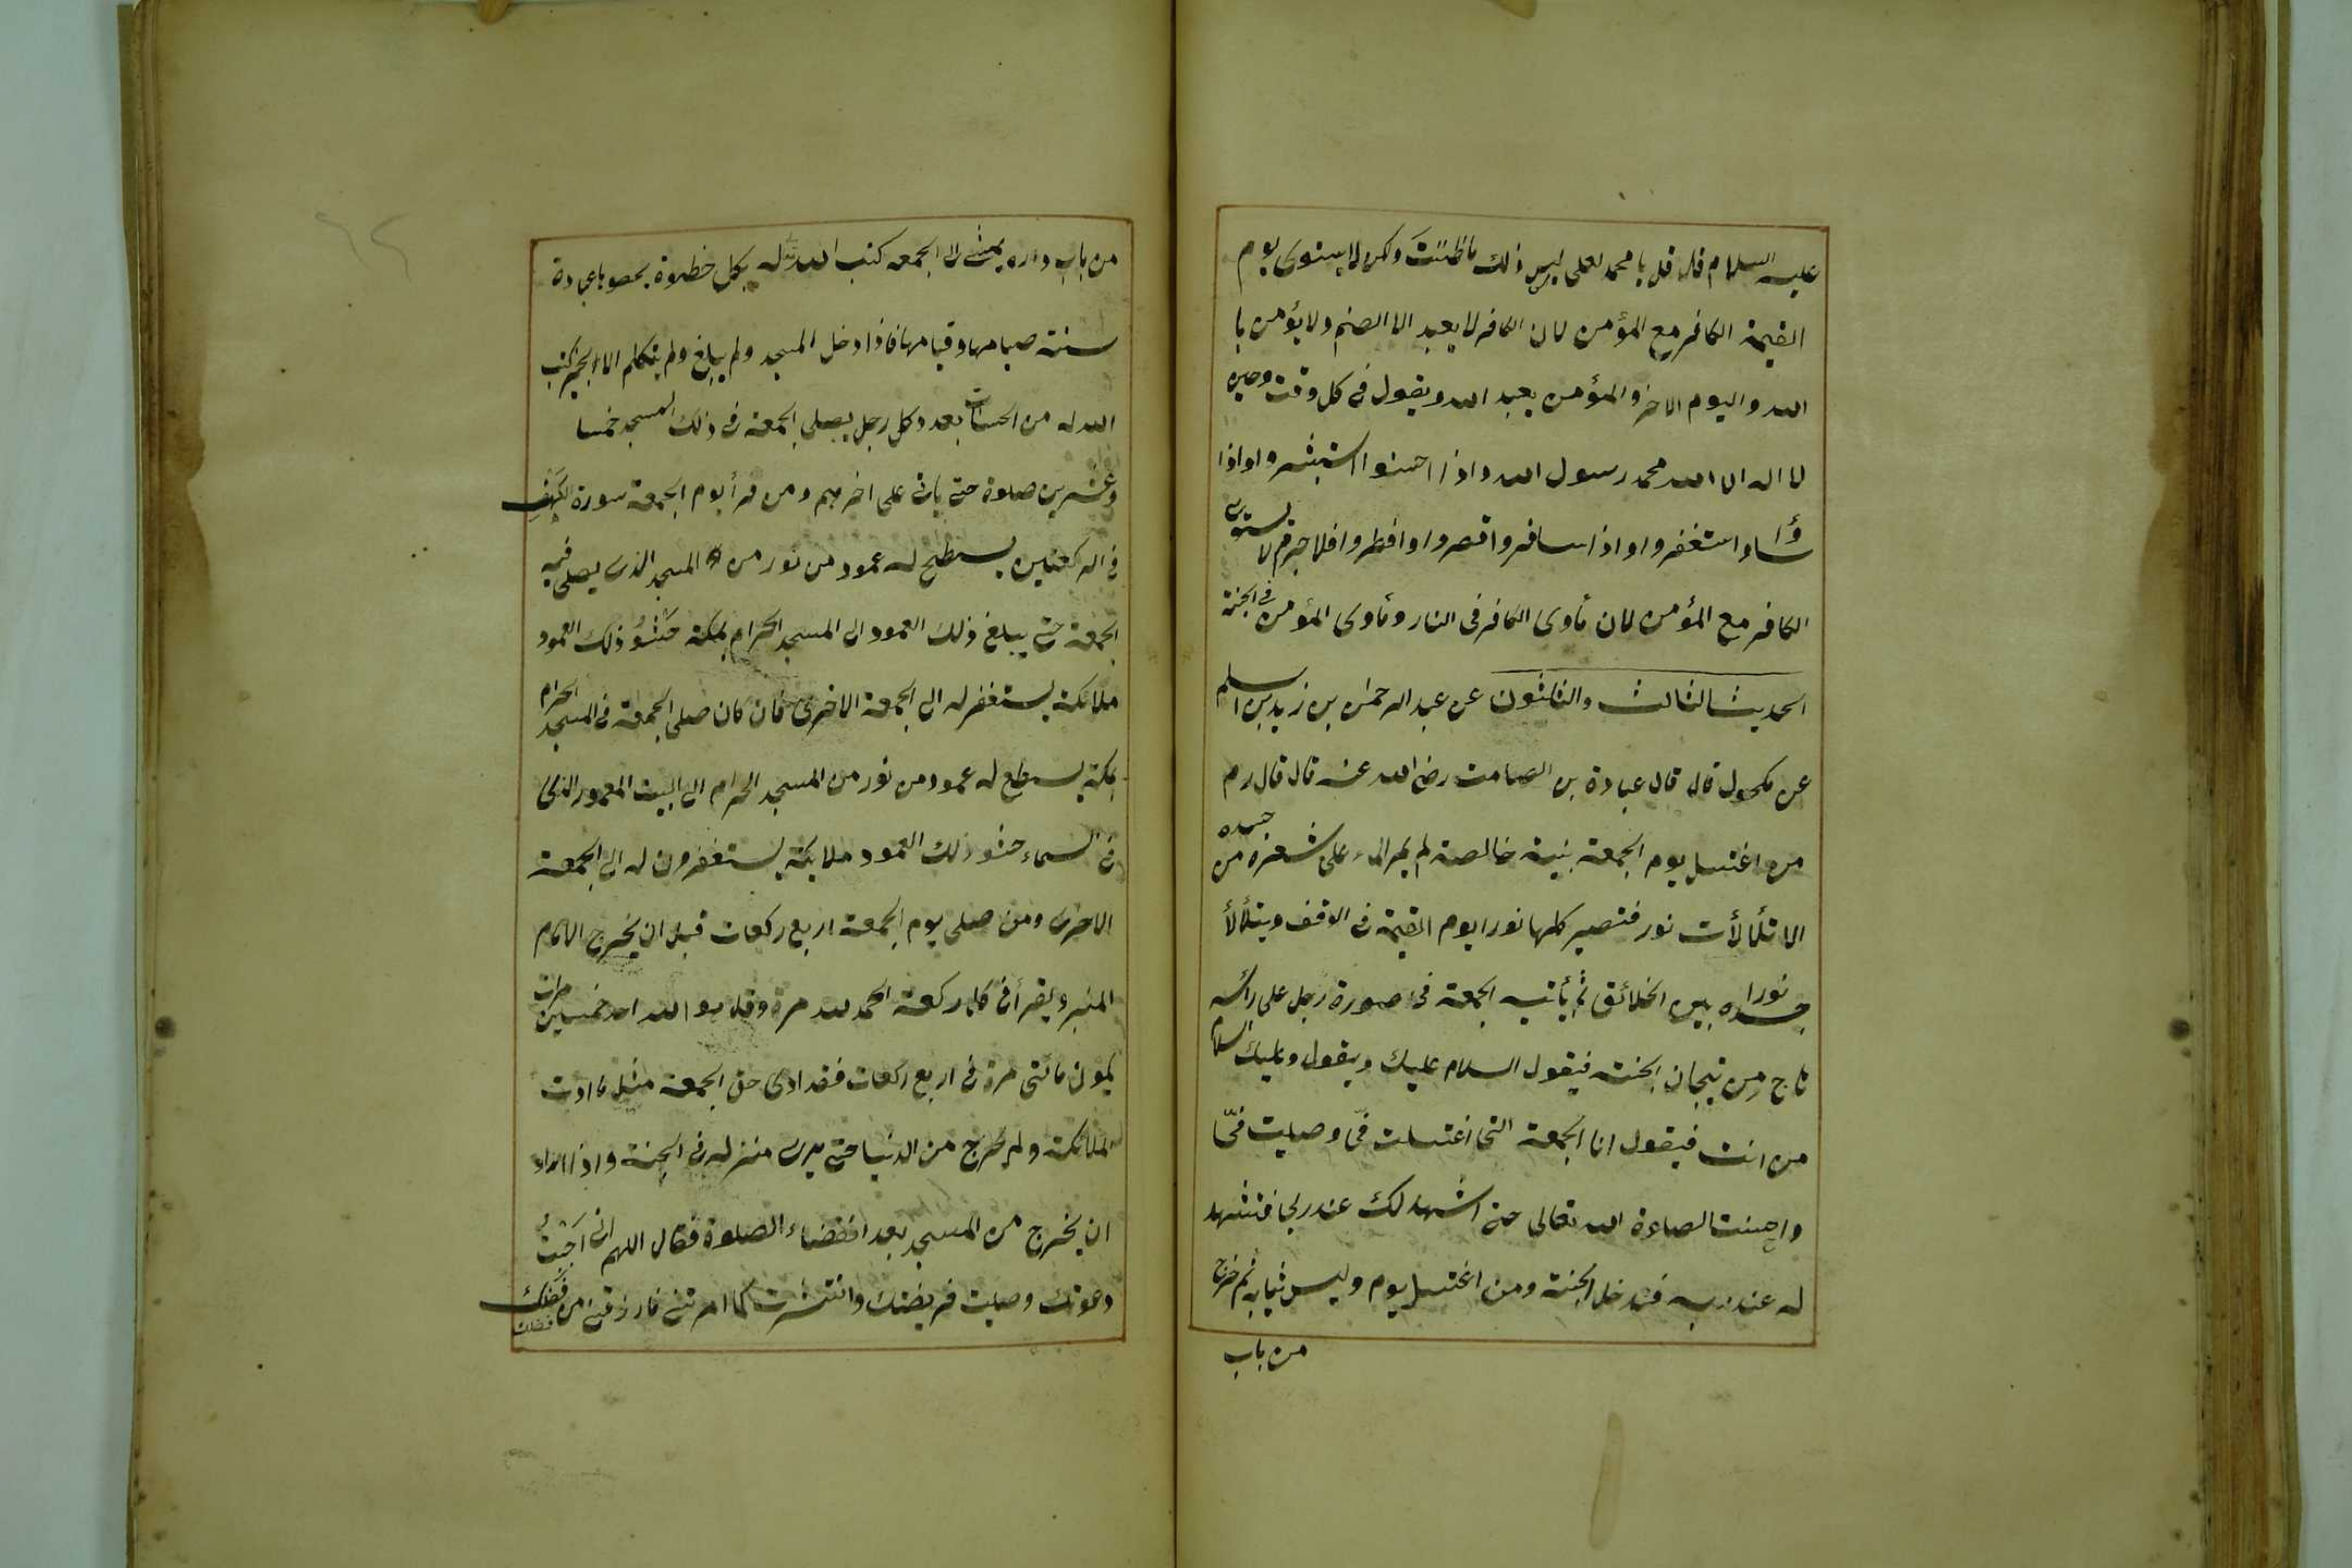 عليه السلام قال قل يا محمد لعلي ليس ذلك ما ظننتَ ولكن لا يستوى يوم
القيمة الكافر مع المؤمن لان الكافر لا يعبد الا الصنم ولا يؤمن با
الله واليوم الاخر والمؤمن يعبد الله ويقول فى كل وقت وحين
لا اله الا الله محمد رسول الله واذا احسنوا استبشروا واذا
اساؤا استغفروا واذا سافروا قصروا وافطروا فلا جرم لا يستوى
الكافر مع المؤمن لان مأوى الكافر فى النار ومأوى المؤمن فى الجنة
الحديث الثالث والثلثون عن عبد الرحمن بن زيد بن اسلم
عن مكحول قال قال عبادة بن الصامت رضى الله عنه قال قال رم
من اغتسل يوم الجمعة بنية خالصة لم يمر الماء على شعرة من جسده
الا تلألأت نور فتصير كلها نورا يوم القيمة فى الوقف ويتلألأ
نورا جسده بين الخلائق ثم يأتيه الجمعة فى صورة رجل على رأسه
تاج من تيجان الجنة فيقول السلام عليك ويقول وعليك السلام
من انت فيقول انا الجمعة التى اغتسلت فىّ وصليت فىّ
واحسنت الصلوة الله تعالى حتى اشهد لك عند ربى فتشهد
له عند ربه فيدخل الجنة ومن اغتسل يوم ولبس ثيابه ثم خرج
من باب
من باب داره يمشى الى الجمعه كتب الله له بكل خطوة يخطوها عبادة
سنة صيامها وقيامها فاذا دخل المسجد ولم يبلغ ولم يتكلم الا الخير كتب
الله له من الحسنات بعدد كل رجل يصلى الجمعة فى ذلك المسجد خمسا
وعشرين صلوة حتى يات على اخرهم ومن قرأ يوم الجمعة سورة الكهف
فى الركعتين يسطع له عمود من نور من المسجد الذى يصلى فيه
الجمعة حتى يبلغ ذلك العمود الى المسجد الحرام بمكة حَشْوُ ذلك العمود
ملائكة يستغفر له الى الجمعة الاخرى فان كان صلى الجمعة فى المسجد الحرام
بمكة يسطع له عمود من نور من المسجد الحرام الى البيت المعمور الذى
فى السماء حشو ذلك العمود ملايكة يستغفرون له الى الجمعة
الاخرى ومن صلى يوم الجمعة اربع ركعات قبل ان يخرج الامام
المنبر ويقرأ فى كل ركعة الحمد لله مرة وقل هو الله احد خمسين مرات
يكون مائتى مرة فى اربع ركعات فقد ادى حق الجمعة مثل ما ادت
الملائكة ولم يخرج من الدنيا حتى يرى منزله فى الجنة واذا اراد
ان يخرج من المسجد بعد انقضاء الصلوة فقال اللهم انى اَجَبْتُ
دعوتك وصليت فريضتك وانتشرت كما امرتنى فارزقنى من فضلك
فضلك